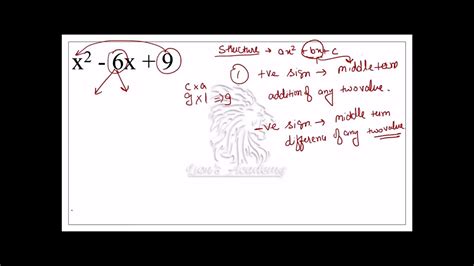 Structure → ax² + bx + c
x² - 6x + 9
① +ve sign → middle term
addition of any two value.
c x a
9 x 1 ⇒ 9
-ve sign → middle term
difference of any two value.
Lion's Academy